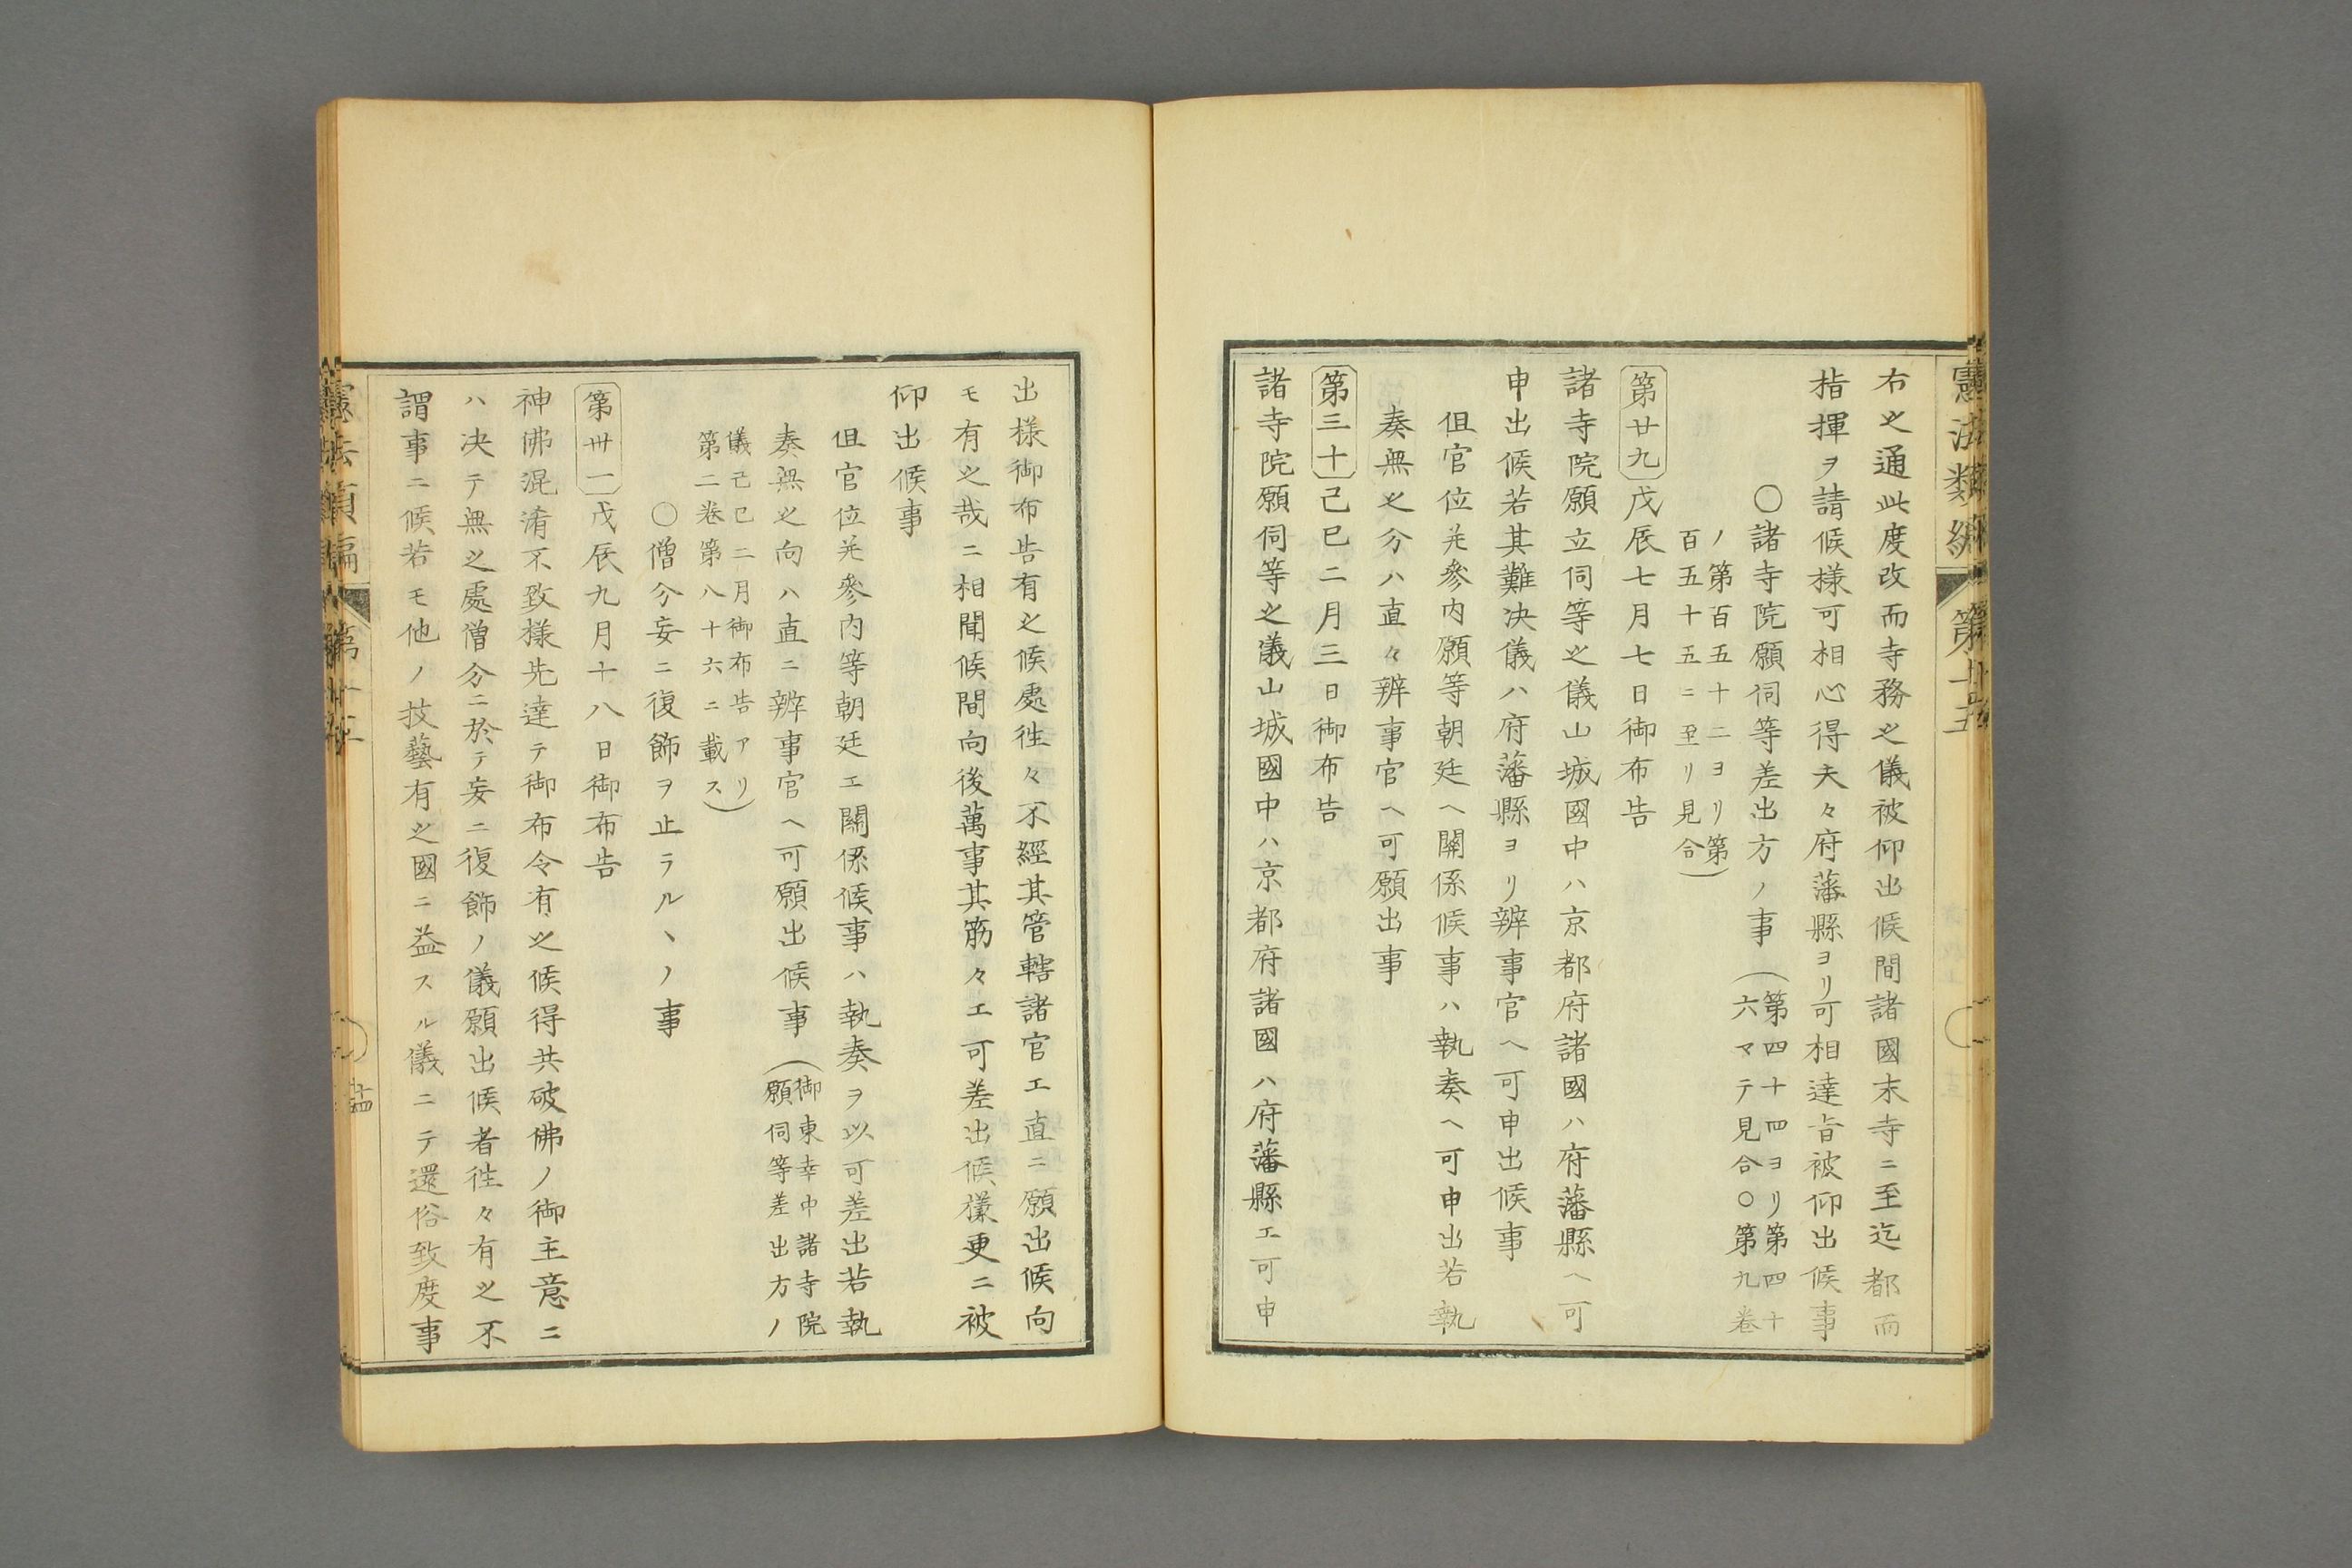 憲法類編 第廿五
右之通此度改而寺務之儀被仰出候間諸國末寺ニ至迄都而
指揮ヲ請候様可相心得夫々府藩縣ヨリ可相達旨被仰出候事
〇諸寺院願伺等差出方ノ事（第四十四ヨリ第四十
六マテ見合〇第九卷
ノ第百五十二ヨリ第
百五十五ニ至リ見合）
第廿九 戊辰七月七日御布告
諸寺院願立伺等之儀山城國中ハ京都府諸國ハ府藩縣ヘ可
申出候若其難決儀ハ府藩縣ヨリ辨事官ヘ可申出候事
但官位并參内願等朝廷ヘ關係候事ハ執奏ヘ可申出若執
奏無之分ハ直々辨事官ヘ可願出事
第三十 己巳二月三日御布告
諸寺院願伺等之議山城國中ハ京都府諸國ハ府藩縣エ可申
出様御布告有之候處徃々不經其管轄諸官エ直ニ願出候向
モ有之哉ニ相聞候間向後萬事其筋々エ可差出候様更ニ被
仰出候事
但官位并參内等朝廷エ關係候事ハ執奏ヲ以可差出若執
奏無之向ハ直ニ辨事官ヘ可願出候事（御東幸中諸寺院
願伺等差出方ノ
儀己巳二月御布告アリ
第二卷第八十六ニ載ス）
〇僧分妄ニ復飾ヲ止ラルヽノ事
第卅一 戊辰九月十八日御布告
神佛混淆不致様先達テ御布令有之候得共破佛ノ御主意ニ
ハ決テ無之處僧分ニ於テ妄ニ復飾ノ儀願出候者徃々有之不
謂事ニ候若モ他ノ技藝有之國ニ益スル儀ニテ還俗致度事